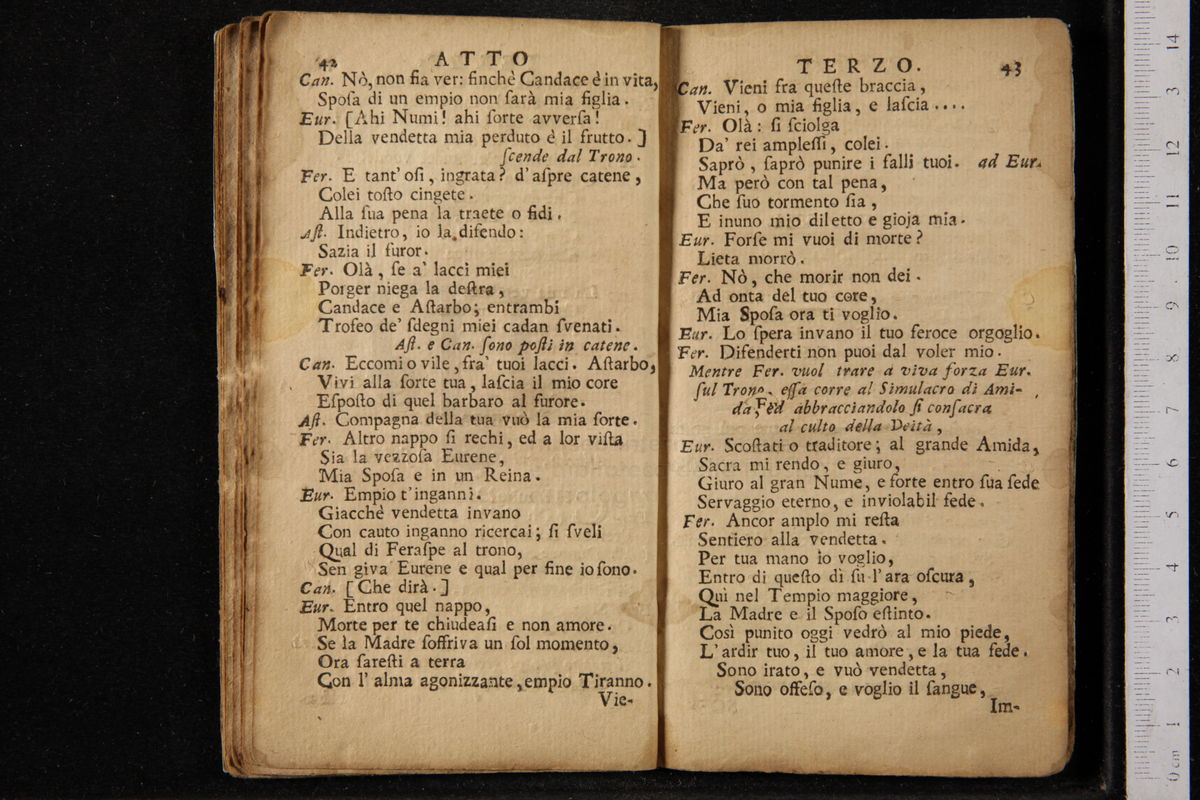 42
ATTO
Can. Nò, non fia ver: finchè Candace è in vita,
Spoſa di un empio non ſarà mia figlia.
Eur. [Ahi Numi! ahi ſorte avverſa!
Della vendetta mia perduto è il frutto.]
ſcende dal Trono.
Fer. E tant' oſi, ingrata? d'aſpre catene,
Colei toſto cingete.
Alla ſua pena la traete o fidi.
Aſt. Indietro, io la difendo:
Sazia il furor.
Fer. Olà, ſe a' lacci miei
Porger niega la deſtra,
Candace e Aſtarbo; entrambi
Trofeo de' ſdegni miei cadan ſvenati.
Aſt. e Can. ſono poſti in catene.
Can. Eccomi o vile, fra' tuoi lacci. Aſtarbo,
Vivi alla ſorte tua, laſcia il mio core
Eſpoſto di quel barbaro al furore.
Aſt. Compagna della tua vuò la mia ſorte.
Fer. Altro nappo ſi rechi, ed a lor viſta
Sia la vezzoſa Eurene,
Mia Spoſa e in un Reina.
Eur. Empio t'inganni.
Giacchè vendetta invano
Con cauto inganno ricercai; ſi ſveli
Qual di Feraſpe al trono,
Sen giva Eurene e qual per fine io ſono.
Can. [Che dirà.]
Eur. Entro quel nappo,
Morte per te chiudeaſi e non amore.
Se la Madre ſoffriva un ſol momento,
Ora ſareſti a terra
Con l' alma agonizzante, empio Tiranno.
Vie-
TERZO.
43
Can. Vieni fra queſte braccia,
Vieni, o mia figlia, e laſcia ....
Fer. Olà: ſi ſciolga
Da' rei ampleſſi, colei.
Saprò, ſaprò punire i falli tuoi. ad Eur.
Ma però con tal pena,
Che ſuo tormento ſia,
E inuno mio diletto e gioja mia.
Eur. Forſe mi vuoi di morte?
Lieta morrò.
Fer. Nò, che morir non dei.
Ad onta del tuo core,
Mia Spoſa ora ti voglio.
Eur. Lo ſpera invano il tuo feroce orgoglio.
Fer. Difenderti non puoi dal voler mio.
Mentre Fer. vuol trare a viva forza Eur.
ſul Trono, eſſa corre al Simulacro di Ami-
da ed abbracciandolo ſi conſacra
al culto della Deità,
Eur. Scoſtati o traditore; al grande Amida,
Sacra mi rendo, e giuro,
Giuro al gran Nume, e forte entro ſua ſede
Servaggio eterno, e inviolabil fede.
Fer. Ancor amplo mi reſta
Sentiero alla vendetta.
Per tua mano io voglio,
Entro di queſto dì ſu l'ara oſcura,
Quì nel Tempio maggiore,
La Madre e il Spoſo eſtinto.
Così punito oggi vedrò al mio piede,
L'ardir tuo, il tuo amore, e la tua fede.
Sono irato, e vuò vendetta,
Sono offeſo, e voglio il ſangue,
Im-
0 cm 1 2 3 4 5 6 7 8 9 10 11 12 3 14